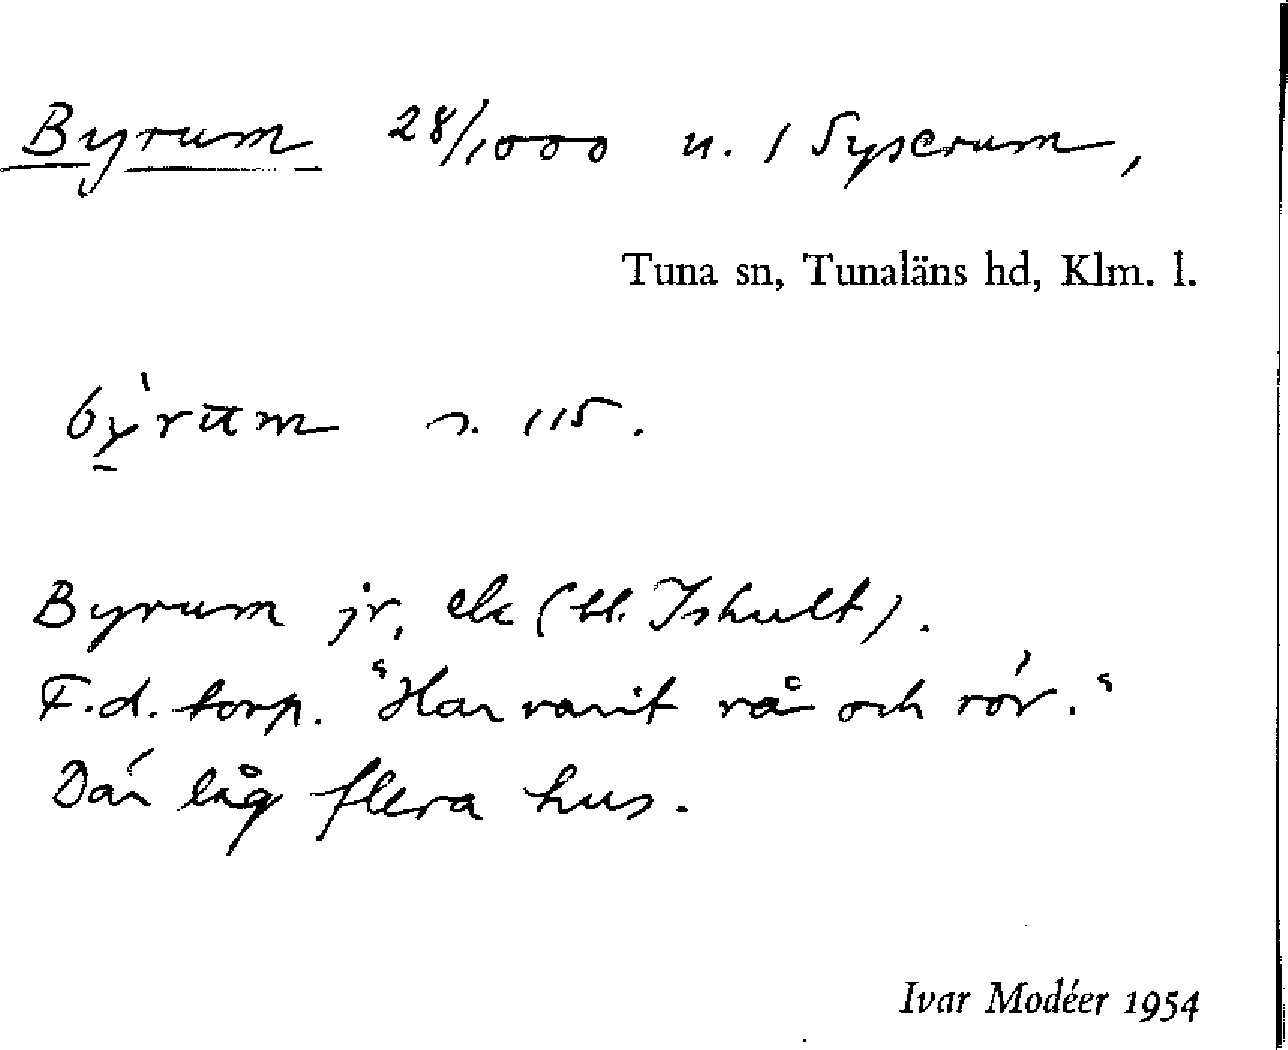 Byrum 28/1000 u. / Syserum,
Tuna sn, Tunaläns hd, Klm. l.
s. 115.
Byrum jr, ek (bl. Ishult).
F.d. torp. "Har varit rå och rör."
Där låg flera hus.
Ivar Modéer 1954